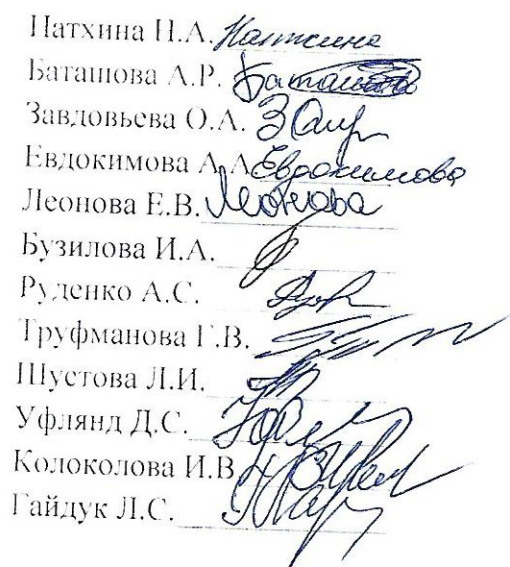 Натхина Н.А. Натхина
Баташова А.Р. Баташова
Завдовьева О.А.
Евдокимова А.А Евдокимова
Леонова Е.В. Леонова
Бузилова И.А.
Руденко А.С.
Труфманова Г.В.
Шустова Л.И.
Уфлянд Д.С.
Колоколова И.В
Гайдук Л.С.